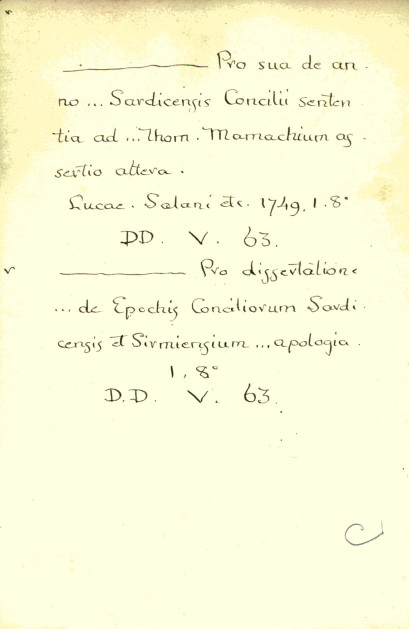 ——— Pro sua de an.
no ... Sardicensis Concilii senten
tia ad ... Thom. Mamachium as.
sertio altera.
Lucae. Salani etc. 1749, 1. 8°
DD. V. 63.
——— Pro dissertatione
... de Epochis Conciliorum Sardi.
censis et Sirmiensium ... apologia.
1, 8°
D.D. V. 63.
C